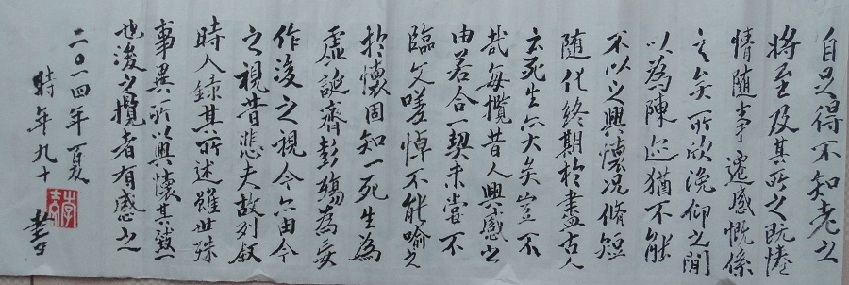 自足得不知老之
将至及其所之既惓
情随事遷感慨係
之矣所欣俛仰之間
以為陳迹猶不能
不以之興懷況脩短
随化終期於盡古人
云死生亦大矣豈不
哉每攬昔人興感之
由若合一契未嘗不
臨文嗟悼不能喻之
於懷固知一死生為
虛誕齊彭殤為妄
作後之視今亦由今
之視昔悲夫故列叙
時人録其所述雖世殊
事異所以興懷其致一
也後之攬者有感之
二〇一四年夏
時年九十